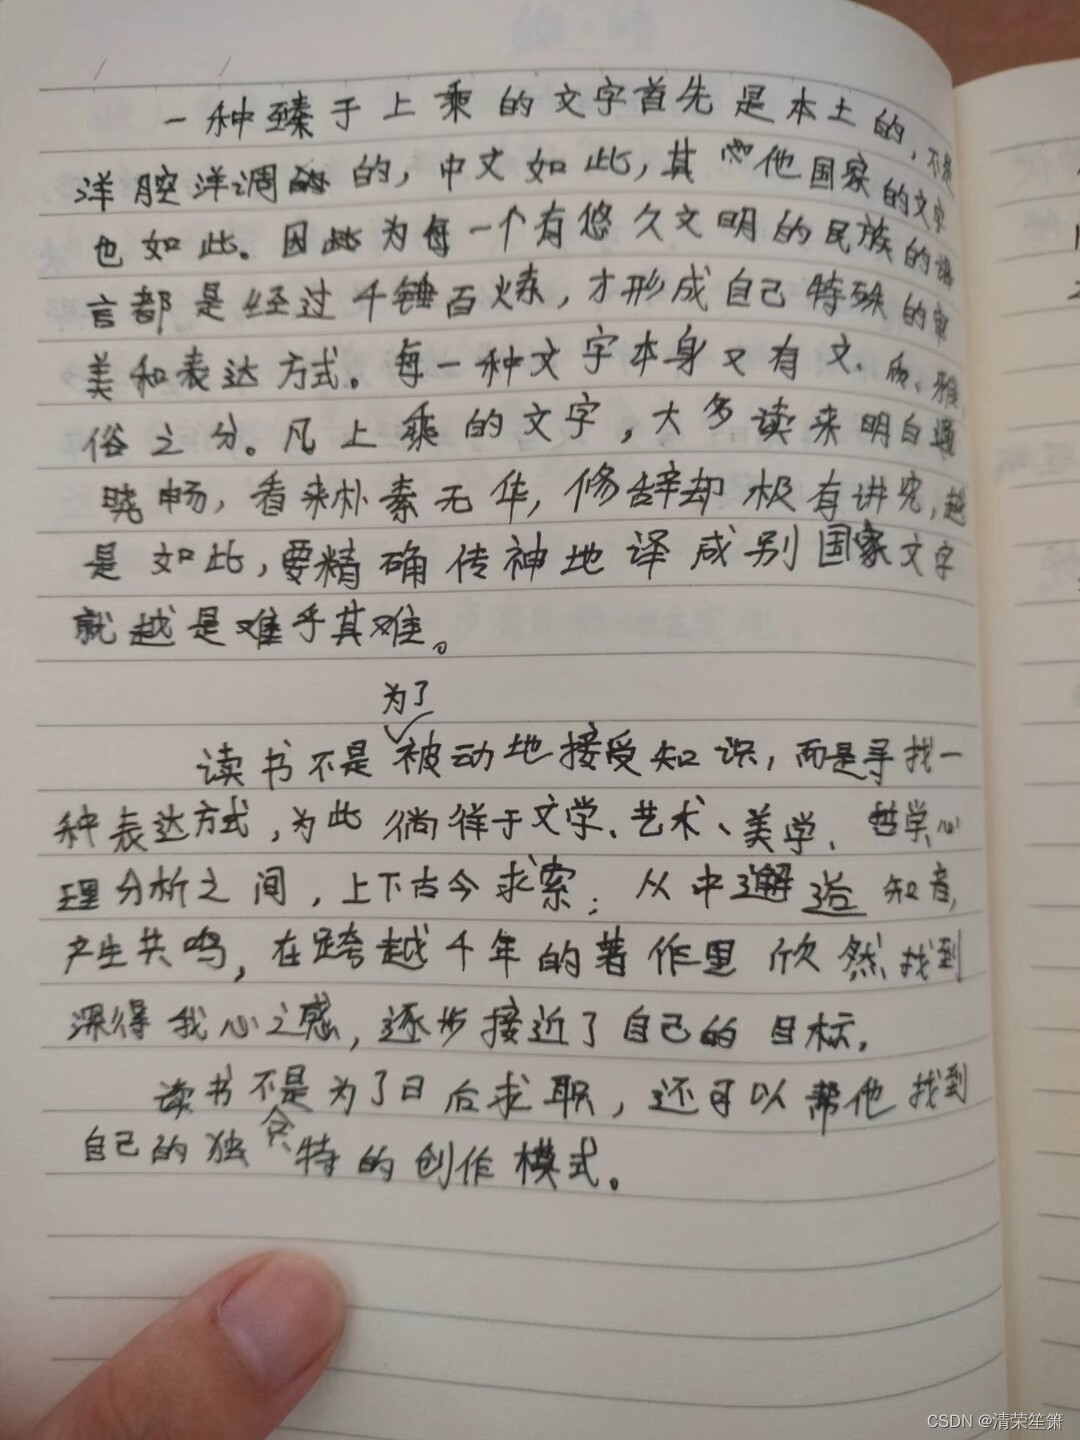 一种臻于上乘的文字首先是本土的，不是
洋腔洋调的，中文如此，其他国家的文字
也如此。因为每一个有悠久文明的民族的语
言都是经过千锤百炼，才形成自己特殊的审
美和表达方式。每一种文字本身又有文、质、雅、
俗之分。凡上乘的文字，大多读来明白通
晓畅，看来朴素无华，修辞却极有讲究，越
是如此，要精确传神地译成别国家文字
就越是难乎其难。
为了
读书不是被动地接受知识，而是寻找一
种表达方式，为此徜徉于文学、艺术、美学、哲学、心
理分析之间，上下古今求索；从中邂逅知音，
产生共鸣，在跨越千年的著作里欣然找到
深得我心之感，逐步接近了自己的目标。
读书不是为了日后求职，还可以帮他找到
自己的独特的创作模式。
CSDN @清荣笙箫